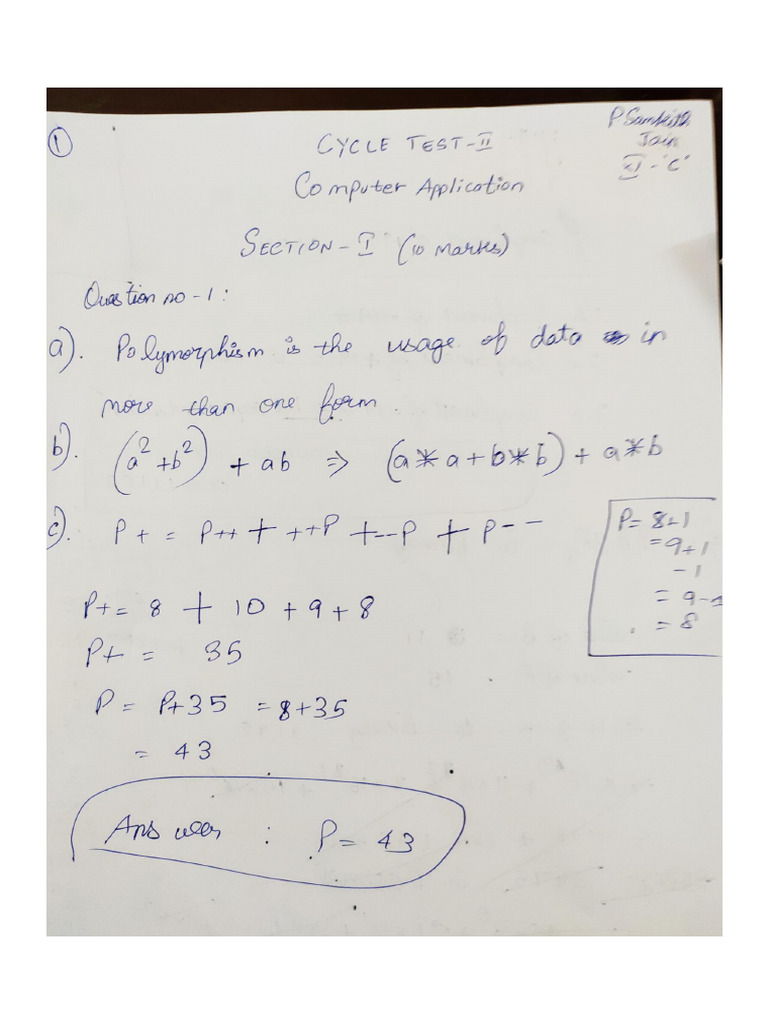 1
P Samkith
Jain
XI-'C'
CYCLE TEST-II
Computer Application
SECTION-I (10 marks)
Question no-1:
a). Polymorphism is the usage of data in
more than one form.
b). (a²+b²) + ab ⇒ (a*a+b*b)+a*b
c). P+= P++ + ++P +--P + P--
P= 8+1
= 9+1
-1
= 9-1
= 8
P+= 8 + 10 + 9 + 8
P+= 35
P= P+35 = 8+35
= 43
Answer : P= 43